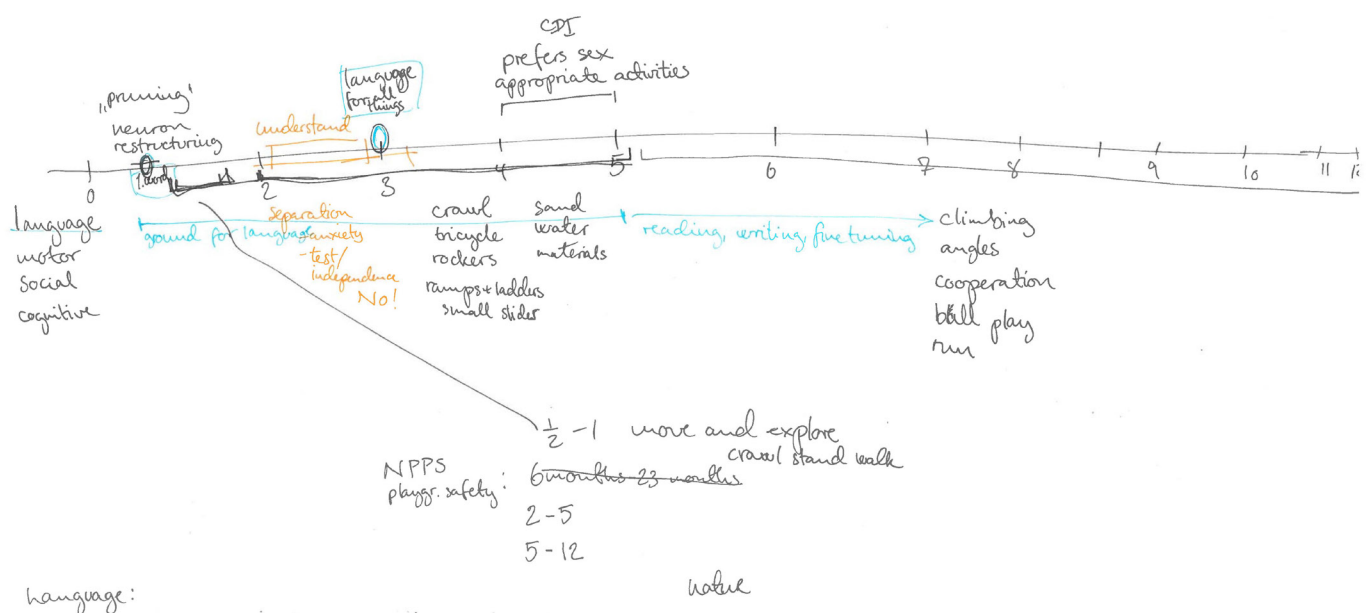 CDI
prefers sex
appropriate activities
language
for all
things
„pruning‘
neuron
restructuring
understand
1. word
0
2
3
4
5
6
7
8
9
10
11
language
motor
social
cognitive
ground for language
separation
anxiety
- test/
independence
No!
crawl
tricycle
rockers
ramps + ladders
small slider
sand
water
materials
reading, writing, fine tuning
climbing
angles
cooperation
ball play
run
½ - 1 move and explore
crawl stand walk
NPPS
playgr. safety:
6 months 23 months
2 - 5
5 - 12
nature
Language: